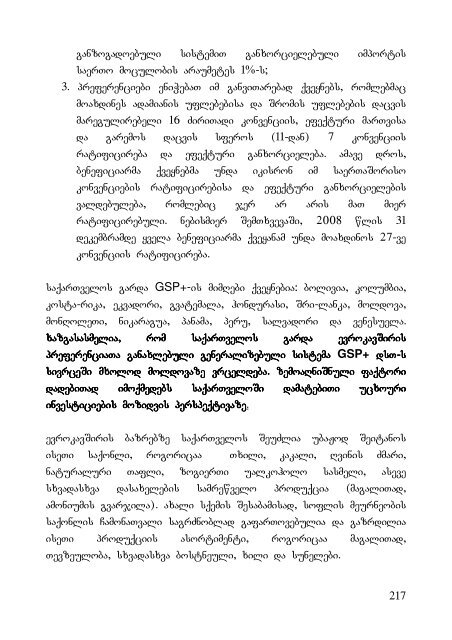 განზოგადოებული სისტემით განხორციელებული იმპორტის
საერთო მოცულობის არაუმეტეს 1%-ს;
3. პრეფერენციები ენიჭებათ იმ განვითარებად ქვეყნებს, რომლებმაც
მოახდინეს ადამიანის უფლებებისა და შრომის უფლებების დაცვის
მარეგულირებელი 16 ძირითადი კონვენციის, ეფექტური მართვისა
და გარემოს დაცვის სფეროს (11-დან) 7 კონვენციის
რატიფიცირება და ეფექტური განხორციელება. ამავე დროს,
ბენეფიციარმა ქვეყნებმა უნდა იკისრონ იმ საერთაშორისო
კონვენციების რატიფიცირებისა და ეფექტური განხორციელების
ვალდებულება, რომლებიც ჯერ არ არის მათ მიერ
რატიფიცირებული. ნებისმიერ შემთხვევაში, 2008 წლის 31
დეკემბრამდე ყველა ბენეფიციარმა ქვეყანამ უნდა მოახდინოს 27-ვე
კონვენციის რატიფიცირება.
საქართველოს გარდა GSP+-ის მიმღები ქვეყნებია: ბოლივია, კოლუმბია,
კოსტა-რიკა, ეკვადორი, გვატემალა, ჰონდურასი, შრი-ლანკა, მოლდოვა,
მონღოლეთი, ნიკარაგუა, პანამა, პერუ, სალვადორი და ვენესუელა.
ხაზგასასმელია, რომ საქართველოს გარდა ევროკავშირის
პრეფერენციათა განახლებული გენერალიზებული სისტემა GSP+ დსთ-ს
სივრცეში მხოლოდ მოლდოვაზე ვრცელდება. ზემოაღნიშნული ფაქტორი
დადებითად იმოქმედებს საქართველოში დამატებითი უცხოური
ინვესტიციების მოზიდვის პერსპექტივაზე;
ევროკავშირის ბაზრებზე საქართველოს შეუძლია უბაჟოდ შეიტანოს
ისეთი საქონლი, როგორიცაა თხილი, კაკალი, ღვინის ძმარი,
ნატურალური თაფლი, ზოგიერთი უალკოჰოლო სასმელი, ასევე
სხვადასხვა დასახელების სამრეწველო პროდუქცია (მაგალითად,
ამონიუმის გვარჯილა). ახალი სქემის შესაბამისად, სოფლის მეურნეობის
საქონლის ჩამონათვალი საგრძნობლად გაფართოვებულია და გაზრდილია
ისეთი პროდუქციის ასორტიმენტი, როგორიცაა მაგალითად,
თევზეულობა, სხვადასხვა ბოსტნეული, ხილი და სუნელები.
217